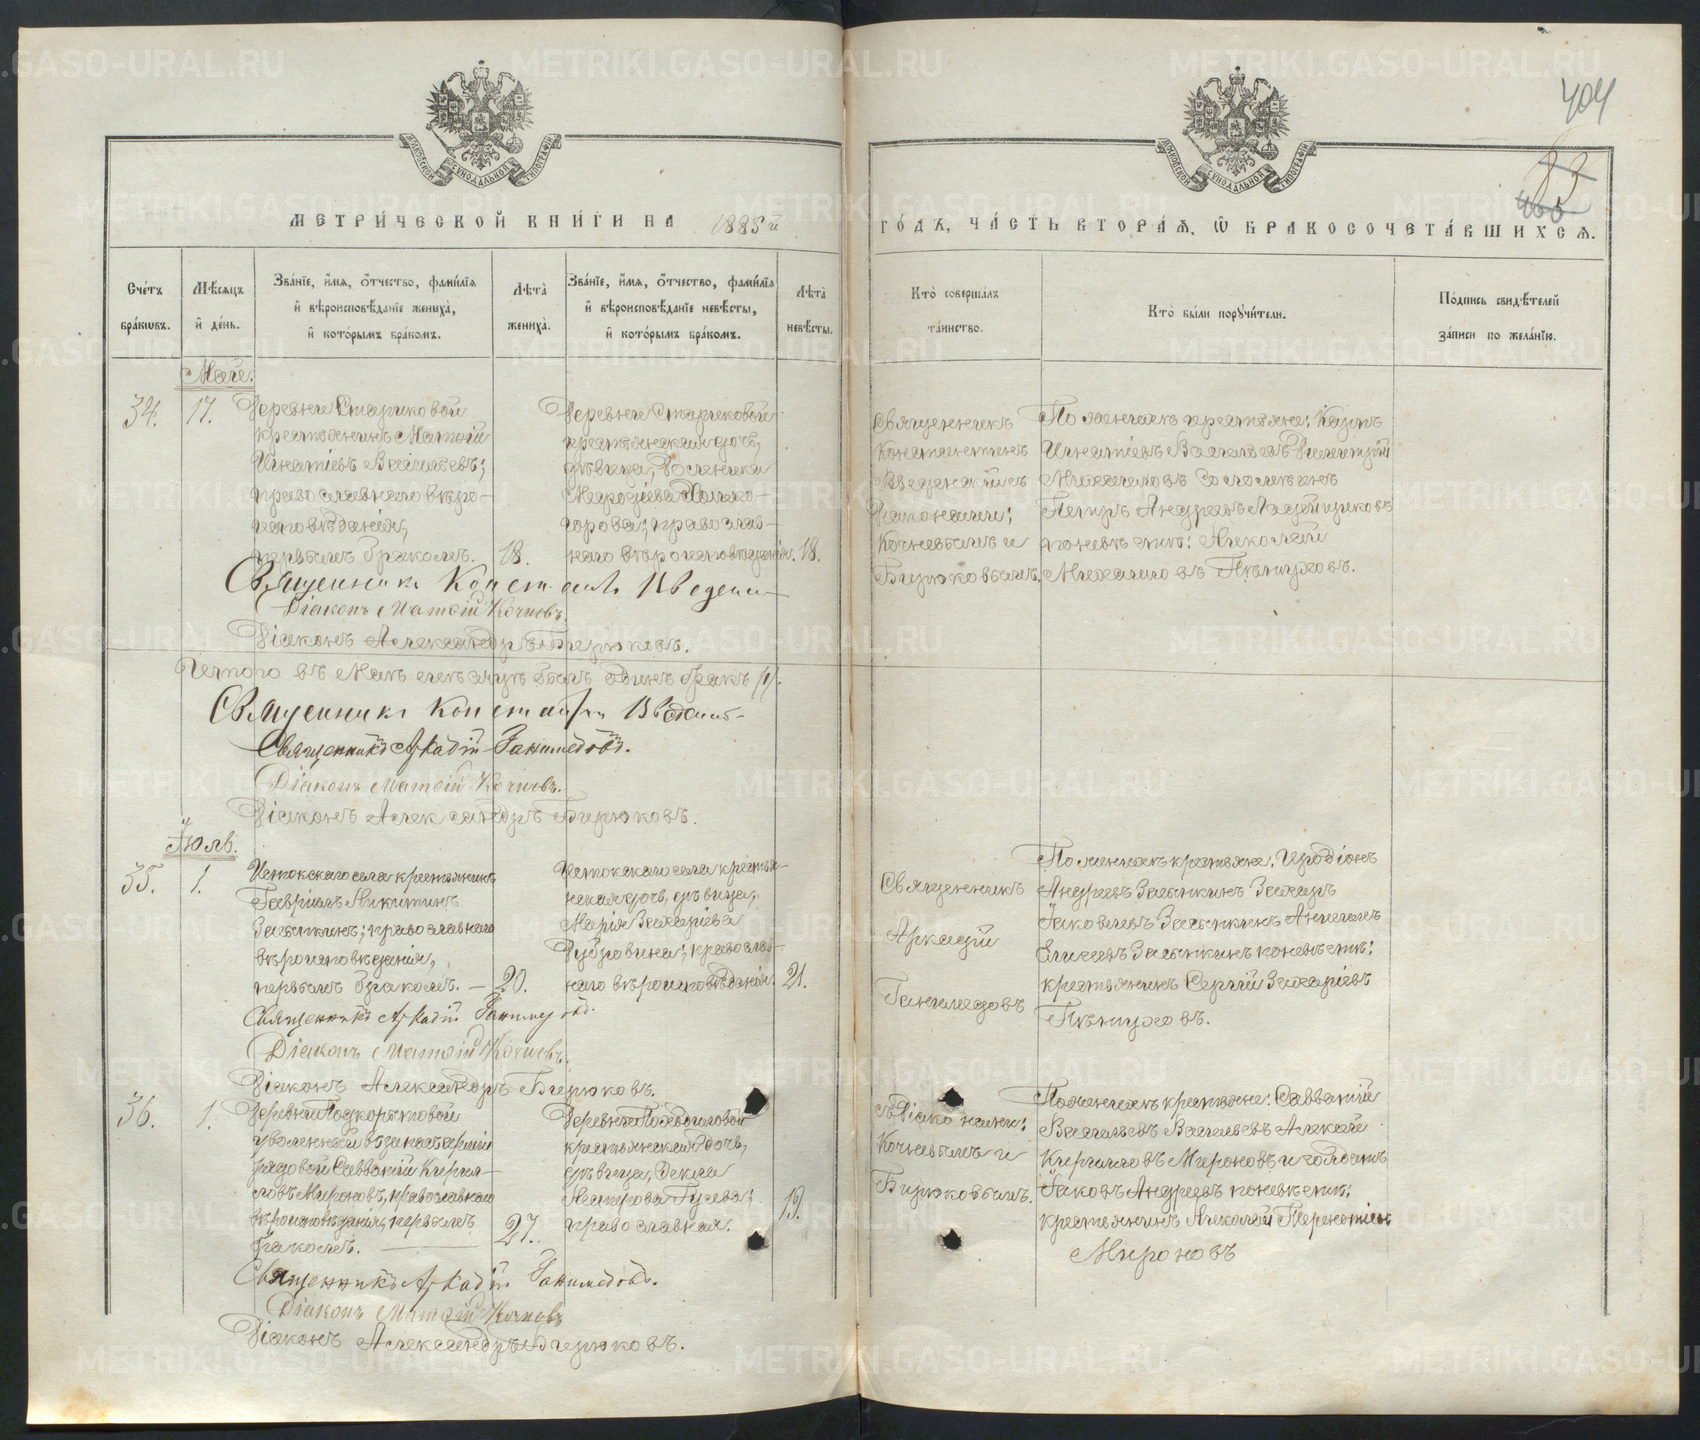 404
83
МЕТРИ́ЧЕСКОЙ КНИ́ГИ НА 1885 й
ГО́ДЪ, ЧА́СТЬ ВТОРА́Я, Ѿ БРАКОСОЧЕТА́ВШИХСЯ.
Сче́тъ бра́кѡвъ.
Мѣ́сяцъ и҆ де́нь.
Зва́нїе, и҆́мя, ѻ҆́тчество, фами́лїя
и҆ вѣроисповѣ́данїе жениха̀,
и҆ кото́рымъ бра́комъ.
Лѣта̀ жениха̀.
Зва́нїе, и҆́мя, ѻ҆́тчество, фами́лїя
и҆ вѣроисповѣ́данїе невѣ́сты,
и҆ кото́рымъ бра́комъ.
Лѣта̀ невѣ́сты.
Кто̀ соверша́лъ
та́инство.
Кто̀ бы́ли порꙋчи́тели.
По́дпись свидѣ́телей
за́писи по жела́нїю.
Маій.
34.
17.
Деревни Стариковой
крестьянинъ Матѳій
Игнатіевъ Васильевъ;
православнаго вѣро-
исповѣданія,
первымъ бракомъ.
18.
Деревни Стариковой
крестьянская дочь,
дѣвица,
Меѳодіева
православ-
наго вѣроисповѣданія.
18.
Священникъ
Константинъ
Введенскій съ
Діаконами:
Кочневымъ и
Бирюковымъ.
По женихѣ крестьяне: Карпъ
Игнатіевъ Васильевъ
Михаиловъ
Петръ Андреевъ
по невѣстѣ: Николай
Михаиловъ Пѣтуховъ.
Священникъ Констант. Введенск
Діаконъ Матѳій Кочневъ.
Діаконъ Александръ Бирюковъ.
Итого въ Маѣ мѣсяцѣ былъ одинъ бракъ /1/.
Священникъ Константин Введенск
Священникъ Аркадій Ганимедовъ.
Діаконъ Матѳій Кочневъ.
Діаконъ Александръ Бирюковъ.
Іюль.
35.
1.
Истокскаго села крестьянинъ
Гавріилъ Никитинъ
Засыпкинъ; православнаго
вѣроисповѣданія,
первымъ бракомъ. —
20.
Истокскаго села крестьян-
ская дочь, дѣвица,
Марія Захаріева
Дубровина; православ-
наго вѣроисповѣданія.
21.
Священникъ
Аркадій
Ганимедовъ
По женихѣ крестьяне: Иродіонъ
Андреевъ Засыпкинъ Захаръ
Іаковлевъ Засыпкинъ
Елисеевъ Засыпкинъ по невѣстѣ:
крестьянинъ Сергій Захаріевъ
Пѣтуховъ.
Священникъ Аркадій Ганимедовъ.
Діаконъ Матѳій Кочневъ.
Діаконъ Александръ Бирюковъ.
36.
1.
Деревни Подкорытовой
уволенный въ запасъ арміи
рядовой Савватій Кирил-
ловъ Мироновъ, православнаго
вѣроисповѣданія, первымъ
бракомъ. —
27.
Деревни
крестьянская дочь,
дѣвица, Ѳекла
Гусева;
православная.
19.
съ Діаконами:
Кочневымъ и
Бирюковымъ.
По женихѣ крестьяне: Савватій
Васильевъ Васильевъ Алексѣй
Кирилловъ Мироновъ и солдатъ
Іаковъ Андреевъ по невѣстѣ:
крестьянинъ Николай Терентіевъ
Мироновъ
Священникъ Аркадій Ганимедовъ.
Діаконъ Матѳій Кочневъ
Діаконъ Александръ Бирюковъ.
METRIKI.GASO-URAL.RU